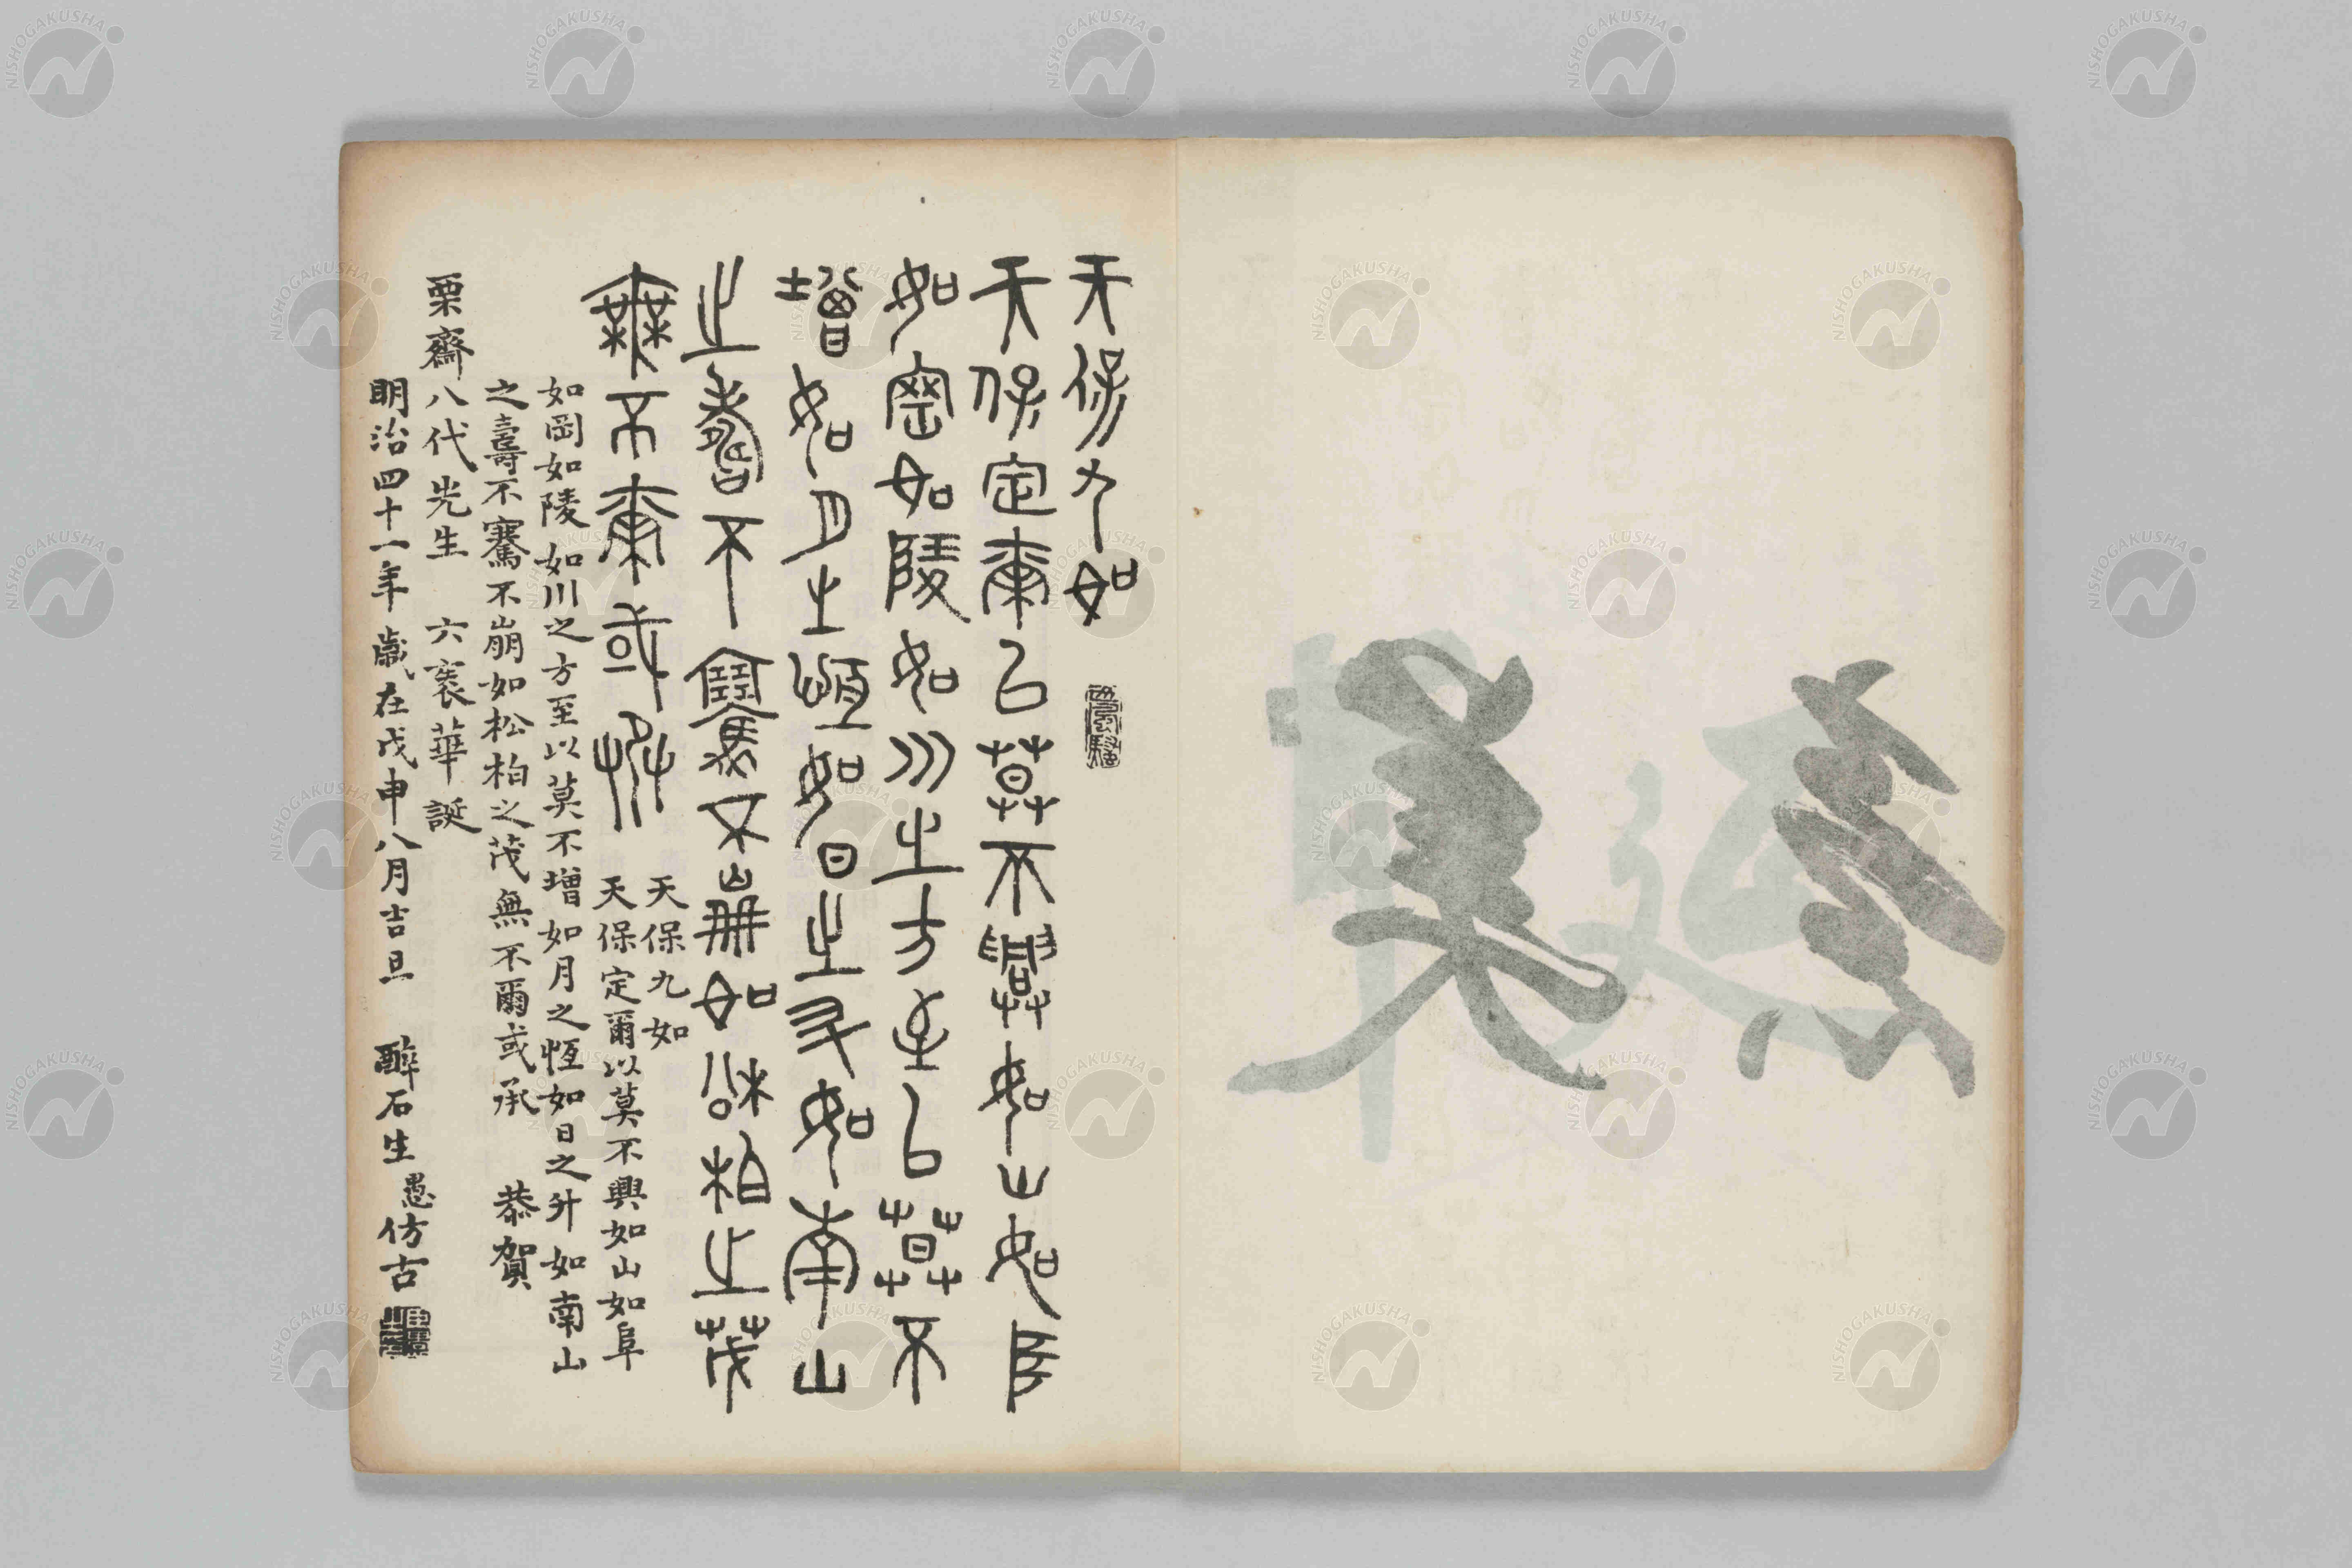 天保九如
天保定爾以莫不興如山如阜
如岡如陵如川之方至以莫不
增如月之恆如日之升如南山
之壽不騫不崩如松柏之茂
無不爾或承
天保九如
天保定爾以莫不興如山如阜
如岡如陵如川之方至以莫不增如月之恆如日之升如南山
之壽不騫不崩如松柏之茂無不爾或承 恭賀
栗齋八代先生 六袠華誕
明治四十一年歲在戊申八月吉旦 醉石生愚仿古
NISHOGAKUSHA